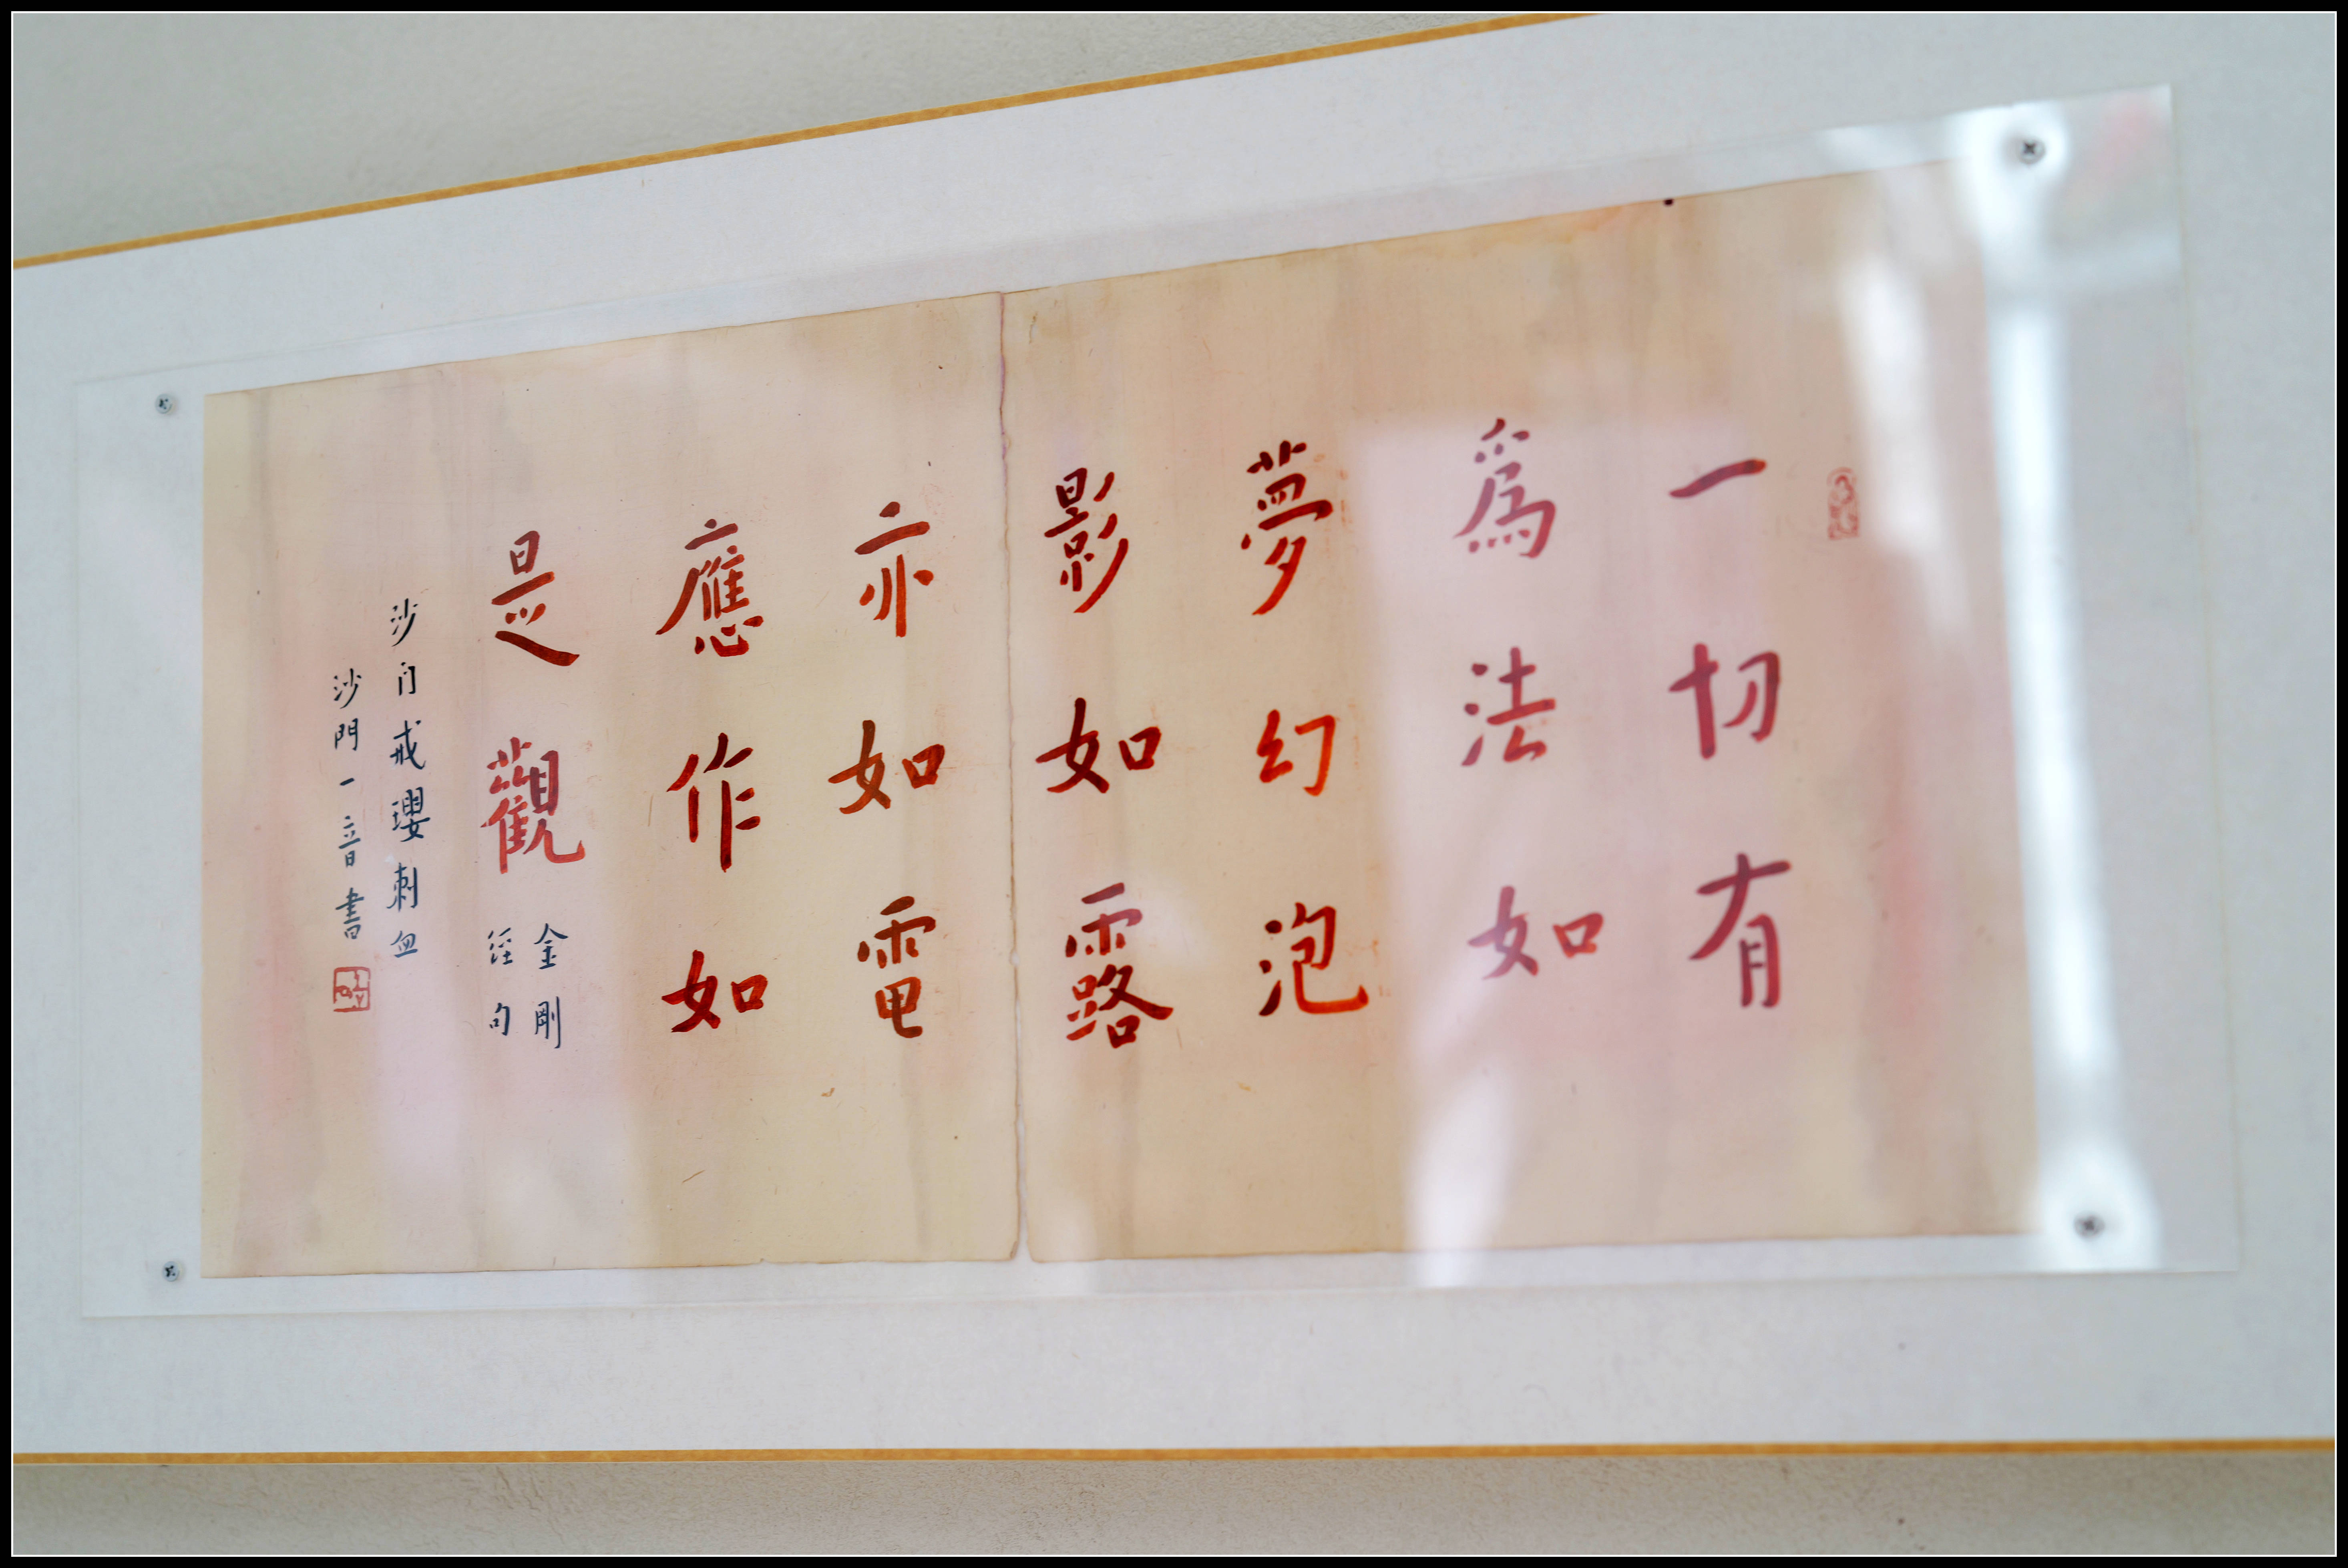 一切有
爲法如
夢幻泡
影如露
亦如電
應作如
是觀
金剛
經句
沙门戒瓔刺血
沙門一音書